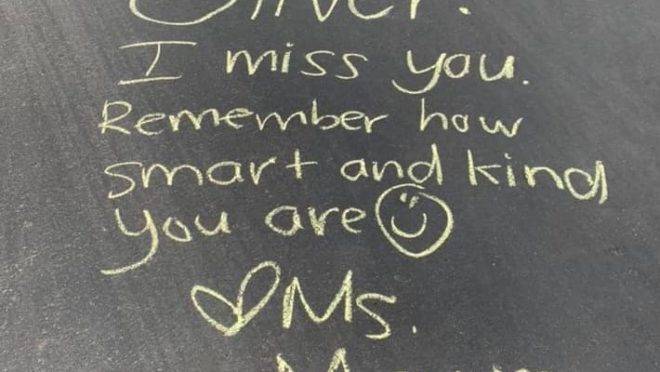 I miss you.
Remember how
smart and kind
you are
Ms.